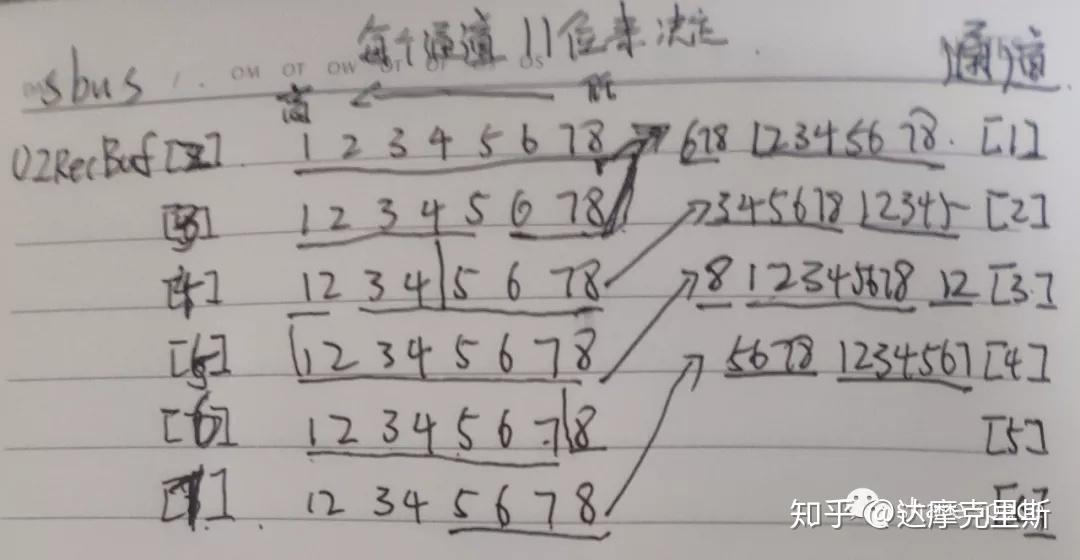 每个通道11位来决定
sbus 通道
高 低
U2RecBuf[2] 1 2 3 4 5 6 7 8 678 12345678 [1]
[3] 1 2 3 4 5 6 7 8 345678 12345 [2]
[4] 1 2 3 4 5 6 7 8 8 12345678 12 [3]
[5] 1 2 3 4 5 6 7 8 5678 1234567 [4]
[6] 1 2 3 4 5 6 7 8 [5]
[7] 1 2 3 4 5 6 7 8
知乎 @达摩克里斯